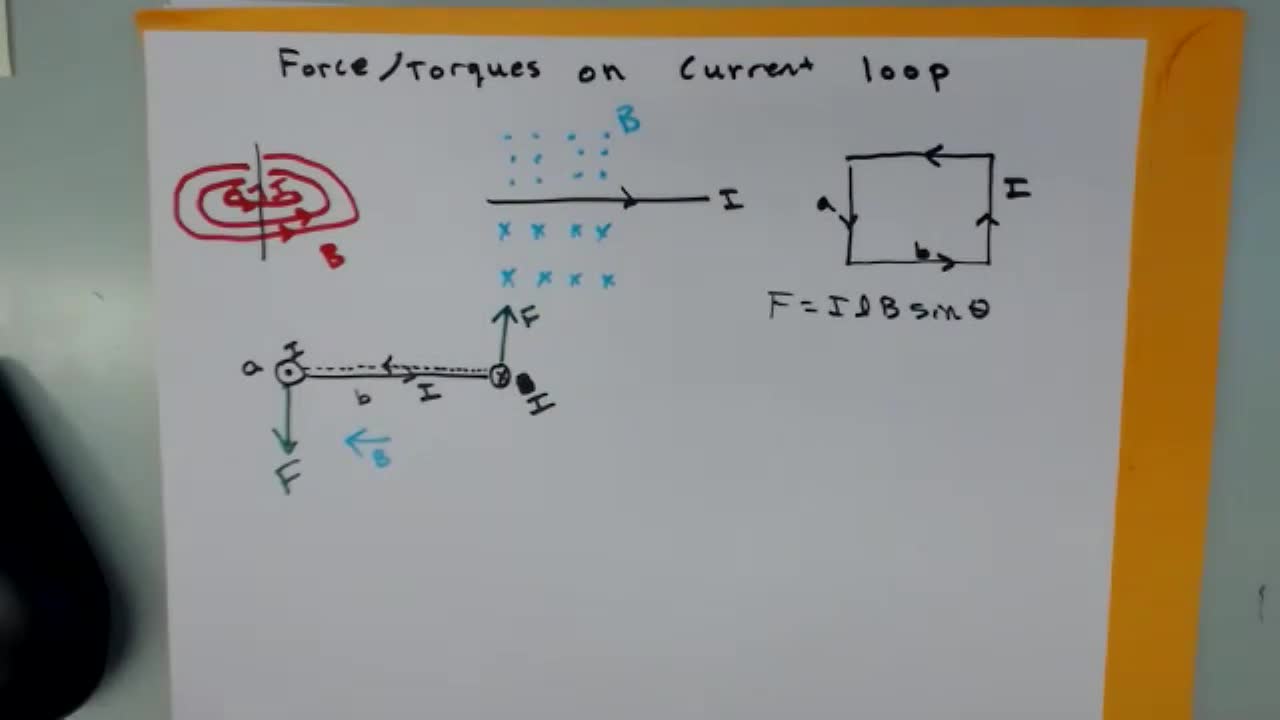 Force/Torques on Current loop
B
B
I
a
I
b
F = I l B sin θ
F
a
I
b
I
I
B
F